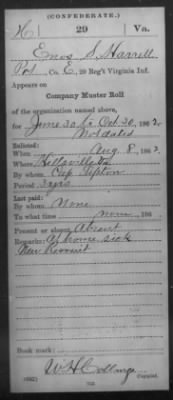 (CONFEDERATE.)
H 29 Va.
Enos S. Harrell
Pvt, Co. E, 29 Reg't Virginia Inf.
Appears on
Company Muster Roll
of the organization named above,
for June 30 to Oct. 30, 1862.
Not dated
Enlisted:
When Aug 8, 1862
Where Hillsville Va
By whom Cap Tipton
Period 3 yrs
Last paid:
By whom None
To what time none, 186
Present or absent Absent
Remarks: At home sick
New Recruit
Book mark:
(642) Copyist.